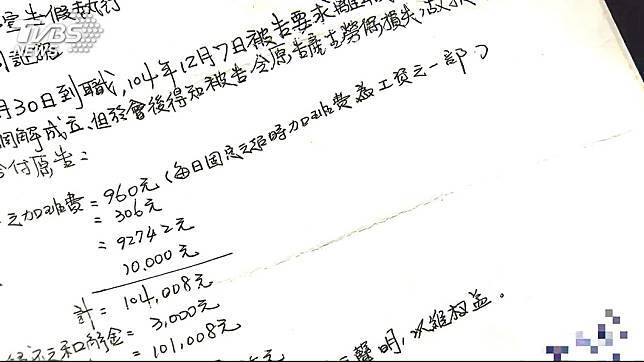 TVBS
NEWS
宣告假執行
月30日到職,104年12月7日被告要求離
調解成立、但於會後得知被告令原告產生勞保損失
付原告:
之加班費=960元(每日固定之超時加班費為工資之一部)
=306元
=92742元
10,000元
計=104,008元
和解金=3,000元
=101,008元
聲明,以維權益.